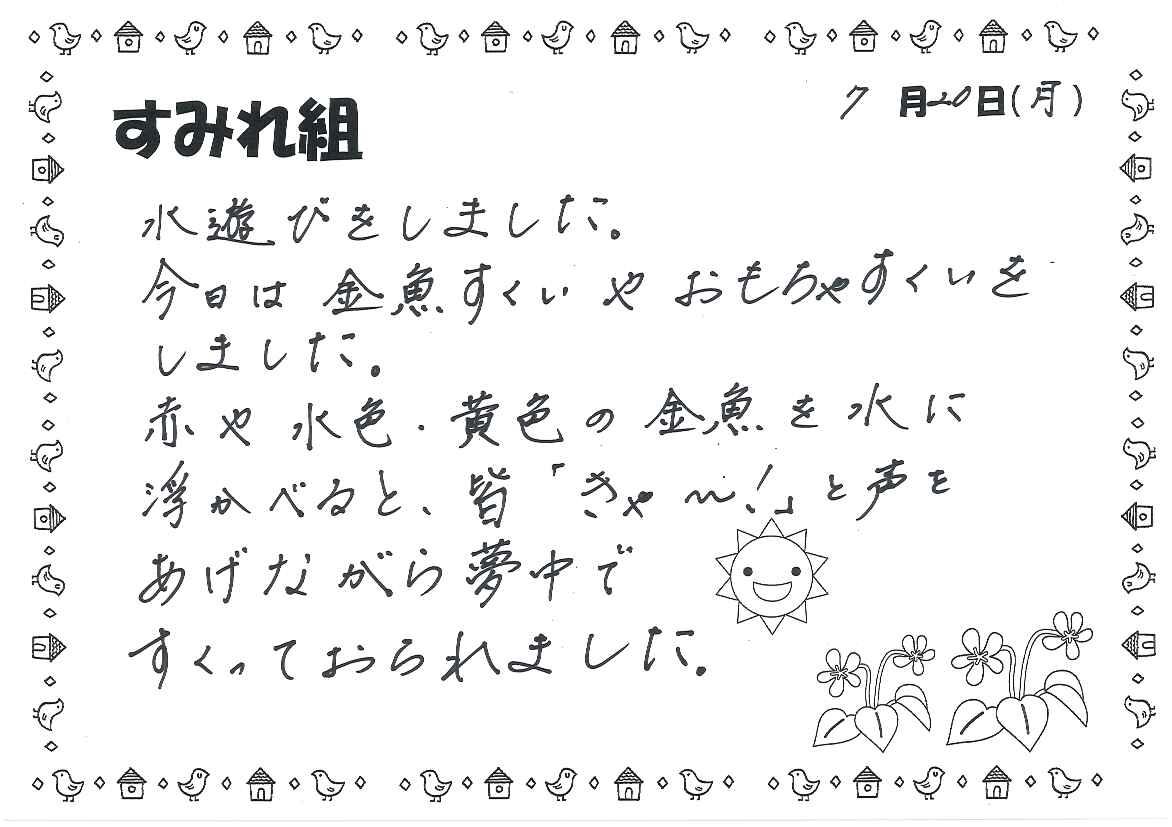 7月20日(月)
すみれ組
水遊びをしました。
今日は金魚すくいやおもちゃすくいを
しました。
赤や水色・黄色の金魚を水に
浮かべると、皆「きゃ〜!」と声を
あげながら夢中で
すくっておられました。